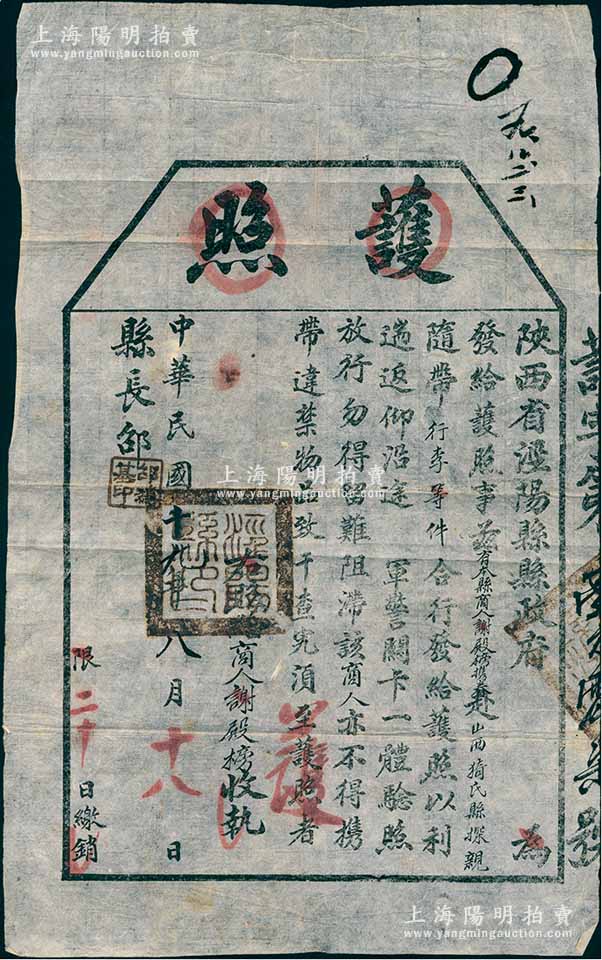 上海陽明拍賣
www.yangmingauction.com
護照
陝西省涇陽縣縣政府 為
發給護照事茲有本縣商人謝殿榜攜妻赴山西猗氏縣探親
隨帶行李等件合行發給護照以利
遄返仰沿途軍警關卡一體驗照
放行勿得留難阻滯該商人亦不得攜
帶違禁物品致干查究須至護照者
商人謝殿榜收執
中華民國十九年八月十八日
縣長邵
限二十日繳銷
上海陽明拍賣
www.yangmingauction.com
上海陽明拍賣
www.yangmingauction.com